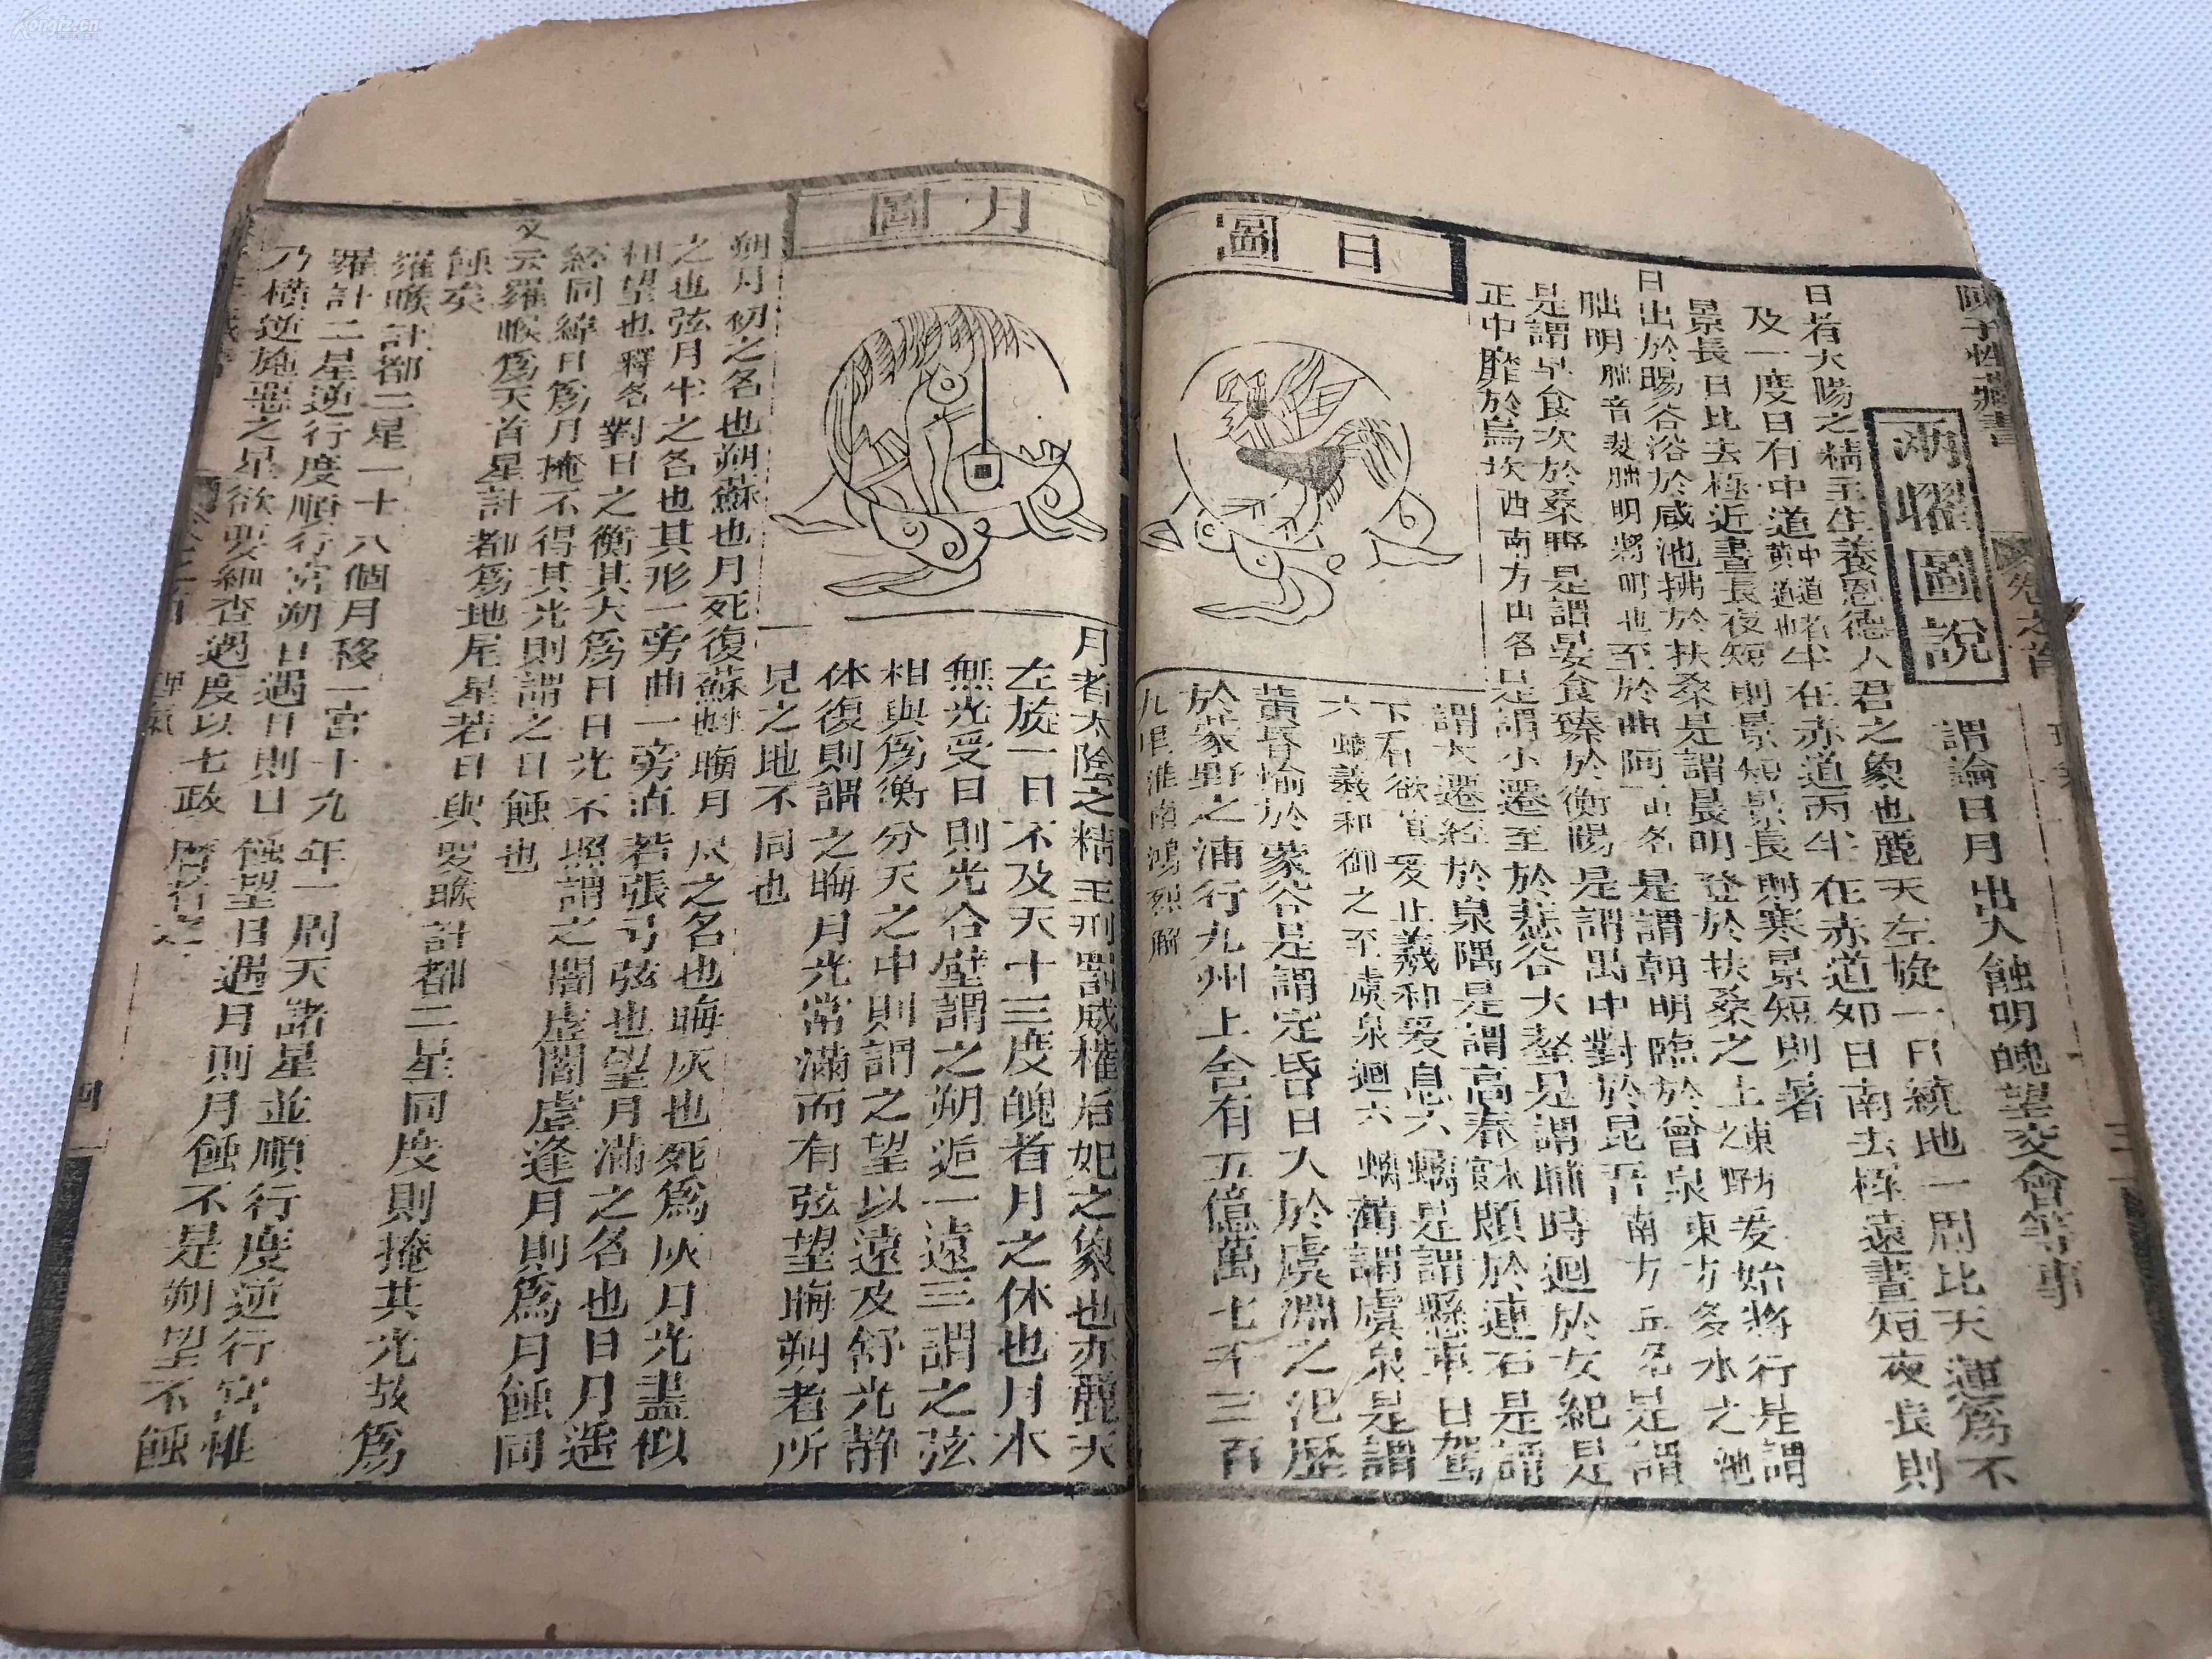 陳子性藏書
卷之首
兩曜圖說
謂論日月出入蝕明魄望交會等事
日者太陽之精主生養恩德人君之象也麗天左旋一日繞地一周比天運為不
及一度日有中道中道者黃道也半在赤道內半在赤道外日南去極遠晝短夜長則
景長日比去極近晝長夜短則景短景長則寒景短則暑
日出於暘谷浴於咸池拂於扶桑是謂晨明登於扶桑之上東野爰始將行是謂
朏明朏音斐朏明將明也至於曲阿山名是謂朝明臨於曾泉東方多水之池
是謂早食次於桑野是謂晏食臻於衡陽是謂禺中對於昆吾南方丘名是謂
正中靡於鳥次西南方山名是謂小遷至於悲谷大壑是謂晡時迴於女紀是
謂大遷經於泉隅是謂高舂頻於連石是謂
下舂爰止羲和爰息六螭是謂懸車日駕
六螭羲和御之至虞泉迴六螭薄謂虞泉是謂
黃昏淪於蒙谷是謂定昏日入於虞淵之汜歷
於蒙野之浦行九州上舍有五億萬七千三百
九里淮南鴻烈解
日圖
月圖
月者太陰之精主刑罰威權后妃之象也亦麗天
左旋一日不及天十三度魄者月之休也月本
無光受日則光合壁謂之朔逅一遠三謂之弦
相與為衡分天之中則謂之望以遠及舒光静
体復則謂之晦月光常滿而有弦望晦朔者所
見之地不同也
朔月初之名也朔蘇也月死復蘇也晦月尽之名也晦灰也死為灰月光盡似
之也弦月半之名也其形一旁曲一旁直若張弓弦也望月滿之名也日月遥
相望也釋名對日之衡其大為日日光不照謂之闇虛闇虛逢月則為月蝕同
經同緯日為月掩不得其光則謂之日蝕也
又云羅睺為天首星計都為地尾星若日與羅睺計都二星同度則掩其光故為
蝕矣
羅睺計都二星一十八個月移一宮十九年一周天諸星並順行度逆行宮惟
羅計二星逆行度順行宮朔日遇日則日蝕望日遇月則月蝕不是朔望不蝕
乃橫逆施惡之星欲要細查過度以七政曆者之
理氣
四